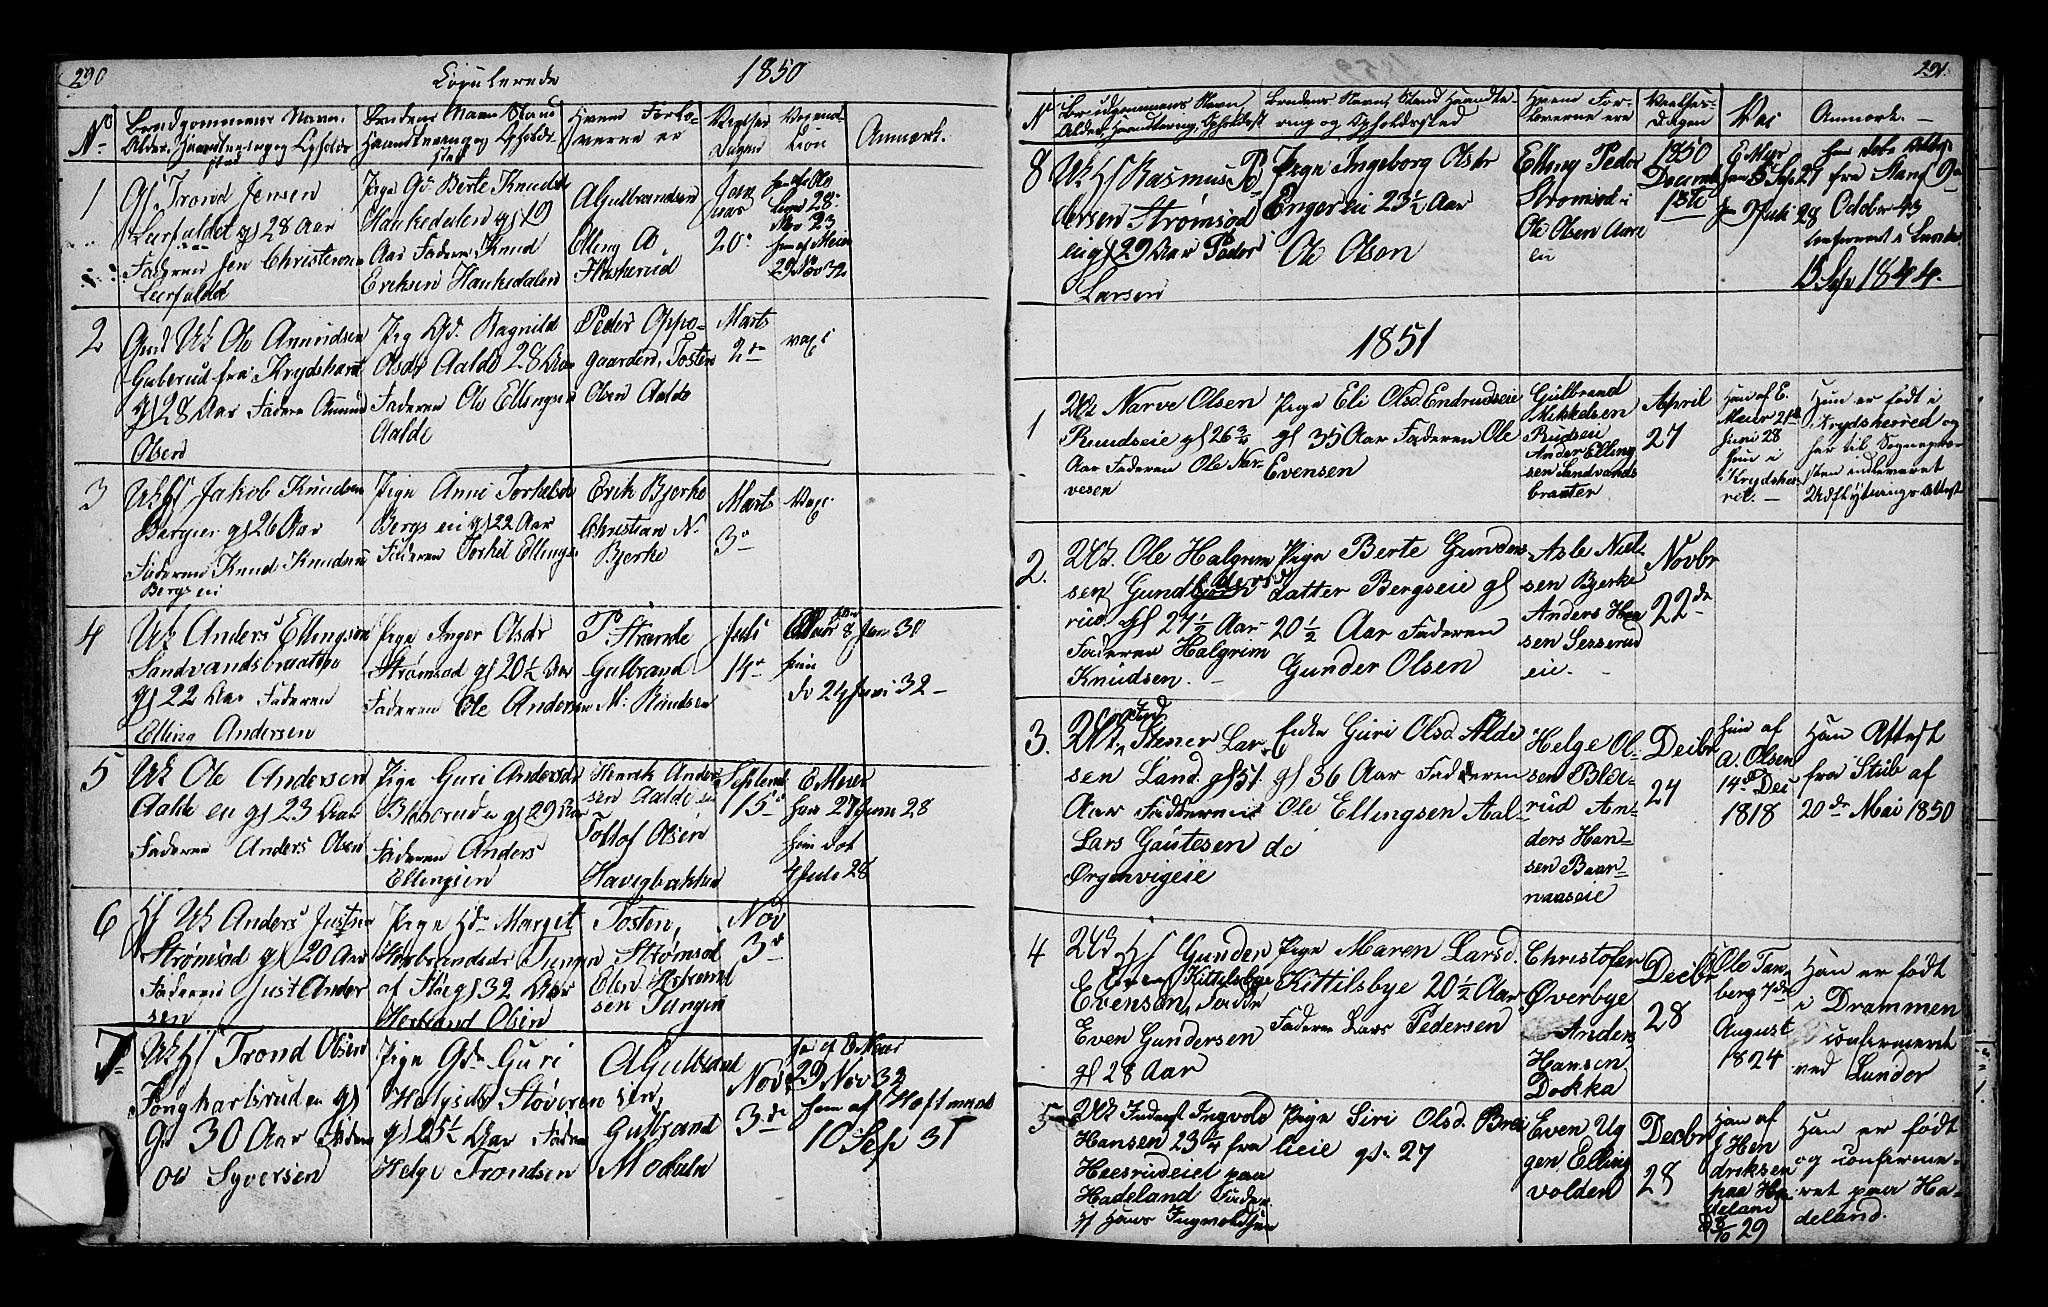 290
Copulerede 1850
No
Brudgommens Navn,
Alder, Haandtering og Opholds
sted
Brudens Navn Stand
Haandtering og Opholds-
sted
Hvem Forlo-
verne er
Vielses
Dagen
Vaccina
tion
Anmærk.
1
Trond Jensen
Leerfaldet gl 28 Aar
Faderen Jen Christensen
Leerfaldet
Pige Gd Berte Knudsd
Haukedalen gl 19
Aar Faderen Knud
Eriksen Haukedalen
AGulbrandsen
Elling A.
Haskerud
Januar
20de
han af Ole
28
Nov 23
hun af Meier
29 Nov 32
2
Ole Amundsen
Guberud fra Krydsherred
gl 28 Aar Fadern Amund
Olsen
Pige Gd. Ragnild
Olsdr Aalde 28 Aar
Faderen Ole Ellingsen
Aalde
Peder Oppe-
gaarden, Tosten
Olsen Aalde
Marts
2de
vacs
3
UK HS Jakob Knudsen
Bergseie gl 26 Aar
Faderen Knud Knudsen
Bergs eie
Pige Anne Torkelsdr
Bergs eie gl 22 Aar
Faderen Torkel Ellingsen
Erik Bjerke
Christian N.
Bjerke
Marts
3de
Vacs
4
UK Anders Ellingsen
Sandvandsbraaten
gl 22 Aar Faderen
Elling Andersen
Pige Inger Olsdr
Strømsod gl 20½ Aar
Faderen Ole Andersen
P Strande
Gulbrand
M. Rudsen
Juli
14de
EMeier 8 Jan 30
hun
do 24 Juni 32
5
UK Ole Andersen
Aalde eie gl 23 Aar
Faderen Anders Olsen
Pige Guri Andersdr
gl 29 Aar
Faderen Anders
Ellingsen
Henrik Ander
sen Aalde eie
Tollof Olsen
Havigbakken
Septemb
15de
E Meier
han 27 Juni 28
hun dot
4 Juli 28
6
HS UK Anders Justsen
Strømsod gl 20 Aar
Faderen Just Ander
sen
Pige Gd Margit
Herbrandsdr Tungen
af gl 32 Aar
Herbrand Olsen
Tosten
Strømsod
Olen Herbrand
sen Tungen
Nov
3de
7
UK HS Trond Olsen
eie gl
30 Aar Faderen
Ole Syversen
Pige Gd Guri
Helgesdr Støveren
gl 25½ Aar Faderen
Helge Trondsen
AGulbrand
sen,
Gulbrand
Moculn
Nov
3de
han af E Meier
29 Nov 32
hun af Hoftmand
10 Sep 31
291
No
Brudgommens Navn,
Alder, Haandtering, Opholdsst
Brudens Navn, Stand Haandte-
ring og Opholdssted
Hvem For-
loverne ere
Vielses-
Dagen
Vac
Anmærk.
8
UK HS Rasmus Pe
dersen Strømsod
eie gl 29 Aar Peder
Larsen
Pige Ingeborg Olsdr
Enger eie 23½ Aar
Ole Olsen
Elling Peder
Strømsod
Ole Olsen
1850
Decemb
1ste
E Meier
han 5 Sep 27
9 Juli 28
fra Stang 9de
October 43
confirmert i Lunder
15 Sep 1844.
1851
1
UK Narve Olsen
Rundseie gl 26¾
Aar Faderen Ole Nar-
vesen
Pige Eli Olsd Endrudseie
gl 35 Aar Faderen Ole
Evensen
Gulbrand
Mikkelsen
Rudseie
Ander Elling
sen Sandvands
braaten
April
27
Han af E.
Meier 21de
Juni 28
hun i
Krydsher-
red.
Hun er født i
Krydsherred og
har til Sognepræ-
sten indleveret
Udflytnings-Attest
2.
UK. Ole Halgrim
sen Gundersd
rud gl 27½ Aar
Faderen Halgrim
Knudsen.
Pige Berte Gunders
datter Bergseie gl
20½ Aar Faderen
Gunder Olsen
Asle Niel-
sen Bjerke
Anders Han
sen Sesserud
eie.
Novbr
22de
3.
UK, Stener Lar-
sen Land. gl 51
Aar Faderen
Lars Gautesen
Ørgenvigeie
Enke Guri Olsd. Alde
gl 36 Aar Faderen
Ole Ellingsen Aal-
de
Helge Ol-
sen Blex-
rud An-
ders Han-
sen Baar-
naaseie
Decbr
24
hun af
A. Olsen
14de Dec
1818
Han Attest
fra Stub af
20de Mai 1850
4
UK HS Gunder
Evensen, Kittilsbye
Even Gundersen
gl 28 Aar
Pige Maren Larsd.
Kittilsbye 20½ Aar
Faderen Lars Pedersen
Christofer
Øverbye
Anders
Hansen
Dokka
Decbr
28
Ole Tan-
berg 7de
August
1824
Han er født
i Drammen
confirmeret
ved Lunder
5
UK Inderst Ingvold
Hansen 23¼ fra
Heesrudeiet paa
Hadeland Fader
HS Hans Ingvoldsen
Pige Siri Olsd. Brei
lieie gl. 27
Even Ug
gen Elling
volden
Decbr
28
Han af
J Hen
driksen
paa Ha
deland
9/10 29
Han er født
og confirme-
ret paa Ha-
deland.